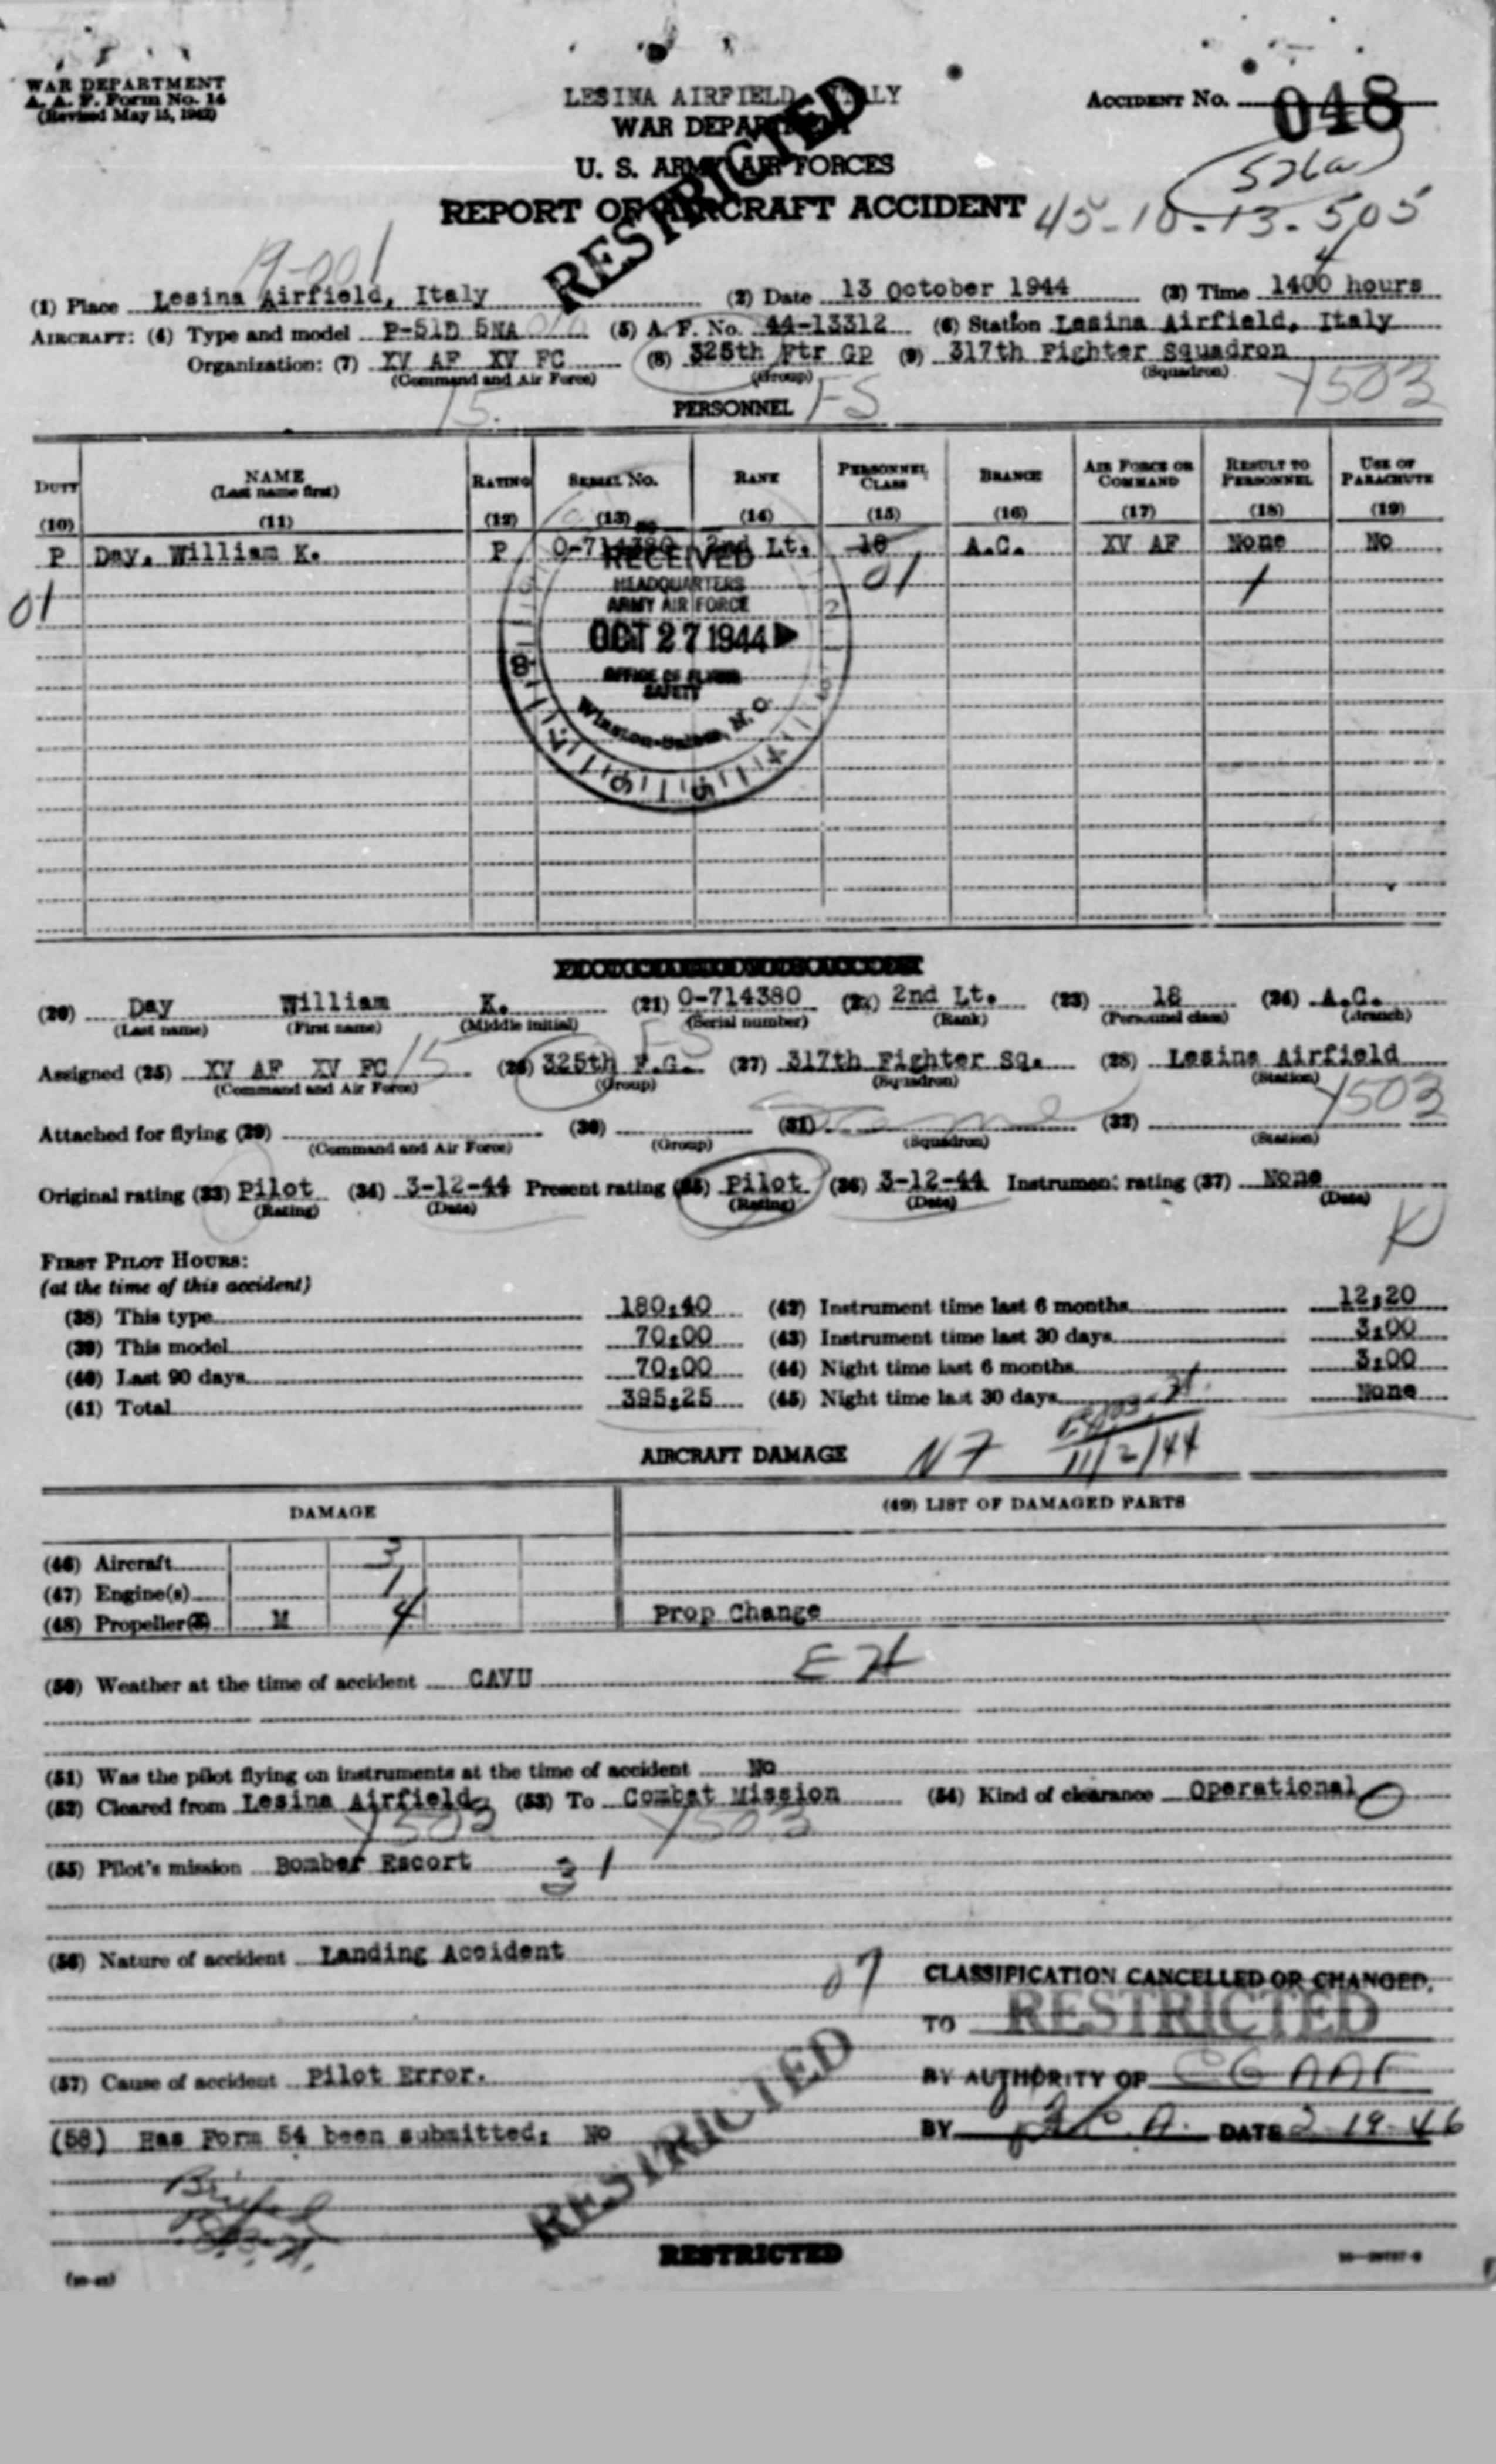 WAR DEPARTMENT
A. A. F. Form No. 14
(Revised May 15, 1942)
LESINA AIRFIELD, ITALY
WAR DEPARTMENT
U. S. ARMY AIR FORCES
REPORT OF AIRCRAFT ACCIDENT
RESTRICTED
ACCIDENT No. 048
45-10-13-505
(1) Place Lesina Airfield, Italy (2) Date 13 October 1944 (3) Time 1400 hours
AIRCRAFT: (4) Type and model P-51D 5NA (5) A. F. No. 44-13312 (6) Station Lesina Airfield, Italy
Organization: (7) XV AF XV FC (8) 325th Ftr Gp (9) 317th Fighter Squadron
(Command and Air Force) (Group) (Squadron)
15. FS Y503
PERSONNEL
DUTY NAME (Last name first) RATING SERIAL No. RANK PERSONNEL CLASS BRANCH AIR FORCE OR COMMAND RESULT TO PERSONNEL USE OF PARACHUTE
(10) (11) (12) (13) (14) (15) (16) (17) (18) (19)
P Day, William K. P O-714380 2nd Lt. 18 A.C. XV AF None No
01 01 1
RECEIVED
HEADQUARTERS
ARMY AIR FORCE
OCT 27 1944
OFFICE OF FLYING
SAFETY
Winston-Salem, N. C.
(20) Day William K. (21) O-714380 (22) 2nd Lt. (23) 18 (24) A.C.
(Last name) (First name) (Middle initial) (Serial number) (Rank) (Personnel class) (Branch)
Assigned (25) XV AF XV FC 15 (26) 325th F.G. (27) 317th Fighter Sq. (28) Lesina Airfield
(Command and Air Force) (Group) (Squadron) (Station)
FS Y503
Attached for flying (29) (30) (31) Same (32)
(Command and Air Force) (Group) (Squadron) (Station)
Original rating (33) Pilot (34) 3-12-44 Present rating (35) Pilot (36) 3-12-44 Instrument rating (37) None
(Rating) (Date) (Rating) (Date) (Date)
FIRST PILOT HOURS:
(at the time of this accident)
(38) This type 180:40 (42) Instrument time last 6 months 12:20
(39) This model 70:00 (43) Instrument time last 30 days 3:00
(40) Last 90 days 70:00 (44) Night time last 6 months 3:00
(41) Total 395:25 (45) Night time last 30 days None
AIRCRAFT DAMAGE N7 11/2/44
DAMAGE (49) LIST OF DAMAGED PARTS
(46) Aircraft 3
(47) Engine(s) 1
(48) Propeller(s) M 4 Prop Change
(50) Weather at the time of accident CAVU
(51) Was the pilot flying on instruments at the time of accident No
(52) Cleared from Lesina Airfield (53) To Combat Mission (54) Kind of clearance Operational
Y503 Y503
(55) Pilot's mission Bomber Escort 31
(56) Nature of accident Landing Accident
07
CLASSIFICATION CANCELLED OR CHANGED,
TO RESTRICTED
(57) Cause of accident Pilot Error.
BY AUTHORITY OF CG AAF
(58) Has Form 54 been submitted: No
BY DATE 2 19 46
RESTRICTED
RESTRICTED